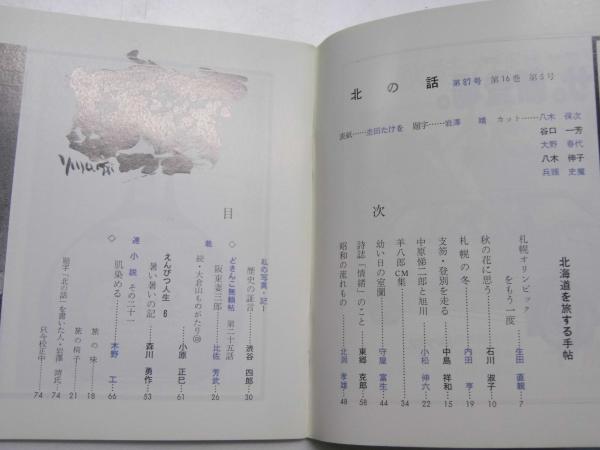 北の話 第87号 第16巻 第5号
表紙……志田たけを 題字……岩澤 靖 カット……八木 保次
谷口 一芳
大野 春代
八木 伸子
兵頭 史魔
目次
北海道を旅する手帖
札幌オリンピックをもう一度……生田 直親…7
秋の花に思う……石川 淑子…10
札幌の冬……内田 亨…19
支笏・登別を走る……中島 祥和…15
中原悌二郎と旭川……小松 伸六…22
羊八郎CM集……34
幼い日の室蘭……守屋 富生…44
詩誌「情緒」のこと……東郷 克郎…58
昭和の流れもの……北浜 孝雄…48
私の写真・記Ⅰ
歴史の証言……渋谷 四郎…30
◇どさんこ無頼帖 第二十五話
阪東妻三郎……比佐 芳武…26
続・大倉山ものがたり……小原 正巳…61
えんぴつ人生 6
暑い暑いの記……森川 勇作…53
◇連載小説 その二十一
肌染める……木野 工…66
旅の味……18
旅の椅子……21
題字「北の話」を書いた人・岩澤靖氏……74
只今校正中……74